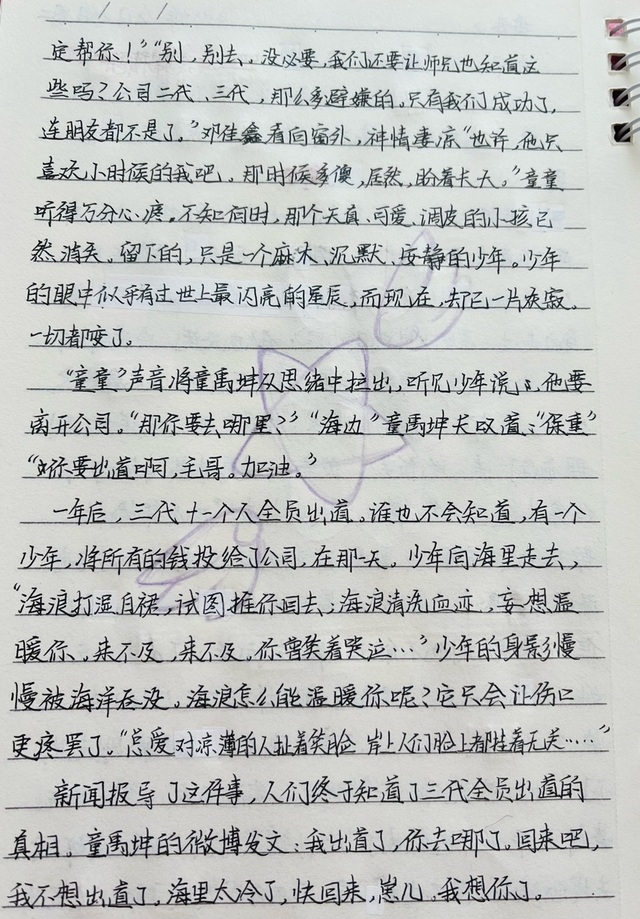 定帮你！”“别，别去。没必要，我们还要让师兄也知道这
些吗？公司二代、三代，那么多避嫌的。只有我们成功了，
连朋友都不是了。”邓佳鑫看向窗外，神情凄凉“也许，他只
喜欢小时候的我吧。那时候多傻，居然，盼着长大。”童童
听得万分心疼。不知何时，那个天真、可爱、调皮的小孩已
然消失。留下的，只是一个麻木、沉默、安静的少年。少年
的眼中似乎有过世上最闪亮的星辰，而现在，却已一片灰寂。
一切都哎了。
“童童”声音将童禹坤从思绪中拉出，听见少年说：他要
离开公司。“那你要去哪里？”“海边”童禹坤长叹道：“保重”
“好你要出道啊，毛哥。加油。”
一年后，三代十一个人全员出道。谁也不会知道，有一个
少年，将所有的钱投给了公司，在那一天。少年向海里走去，
“海浪打湿白裙，试图推你回去；海浪清洗血迹，妄想温
暖你。来不及，来不及。你曾笑着哭泣…”少年的身影慢
慢被海洋吞没。海浪怎么能温暖你呢？它只会让伤口
更疼罢了。“总爱对凉薄的人扯着笑脸 岸上人们脸上都挂着无关……”
新闻报导了这件事，人们终于知道了三代全员出道的
真相。童禹坤的微博发文：我出道了，你去哪了。回来吧，
我不想出道了。海里太冷了，快回来，崽儿，我想你了。